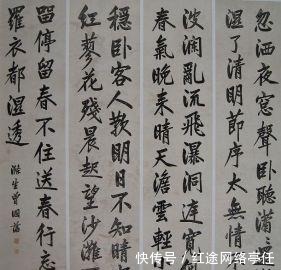 忽洒夜窓聲卧聽瀟
濕了清明節序太無情
波瀾亂流飛瀑洞庭寬
春氣晚來晴天澹雲輕
穩卧客人歎明日不知晴
紅蓼花殘晨起望沙灘
留停留春不住送春行忘
羅衣都濕透
滌生曾國藩
快传号/红途网络亭任